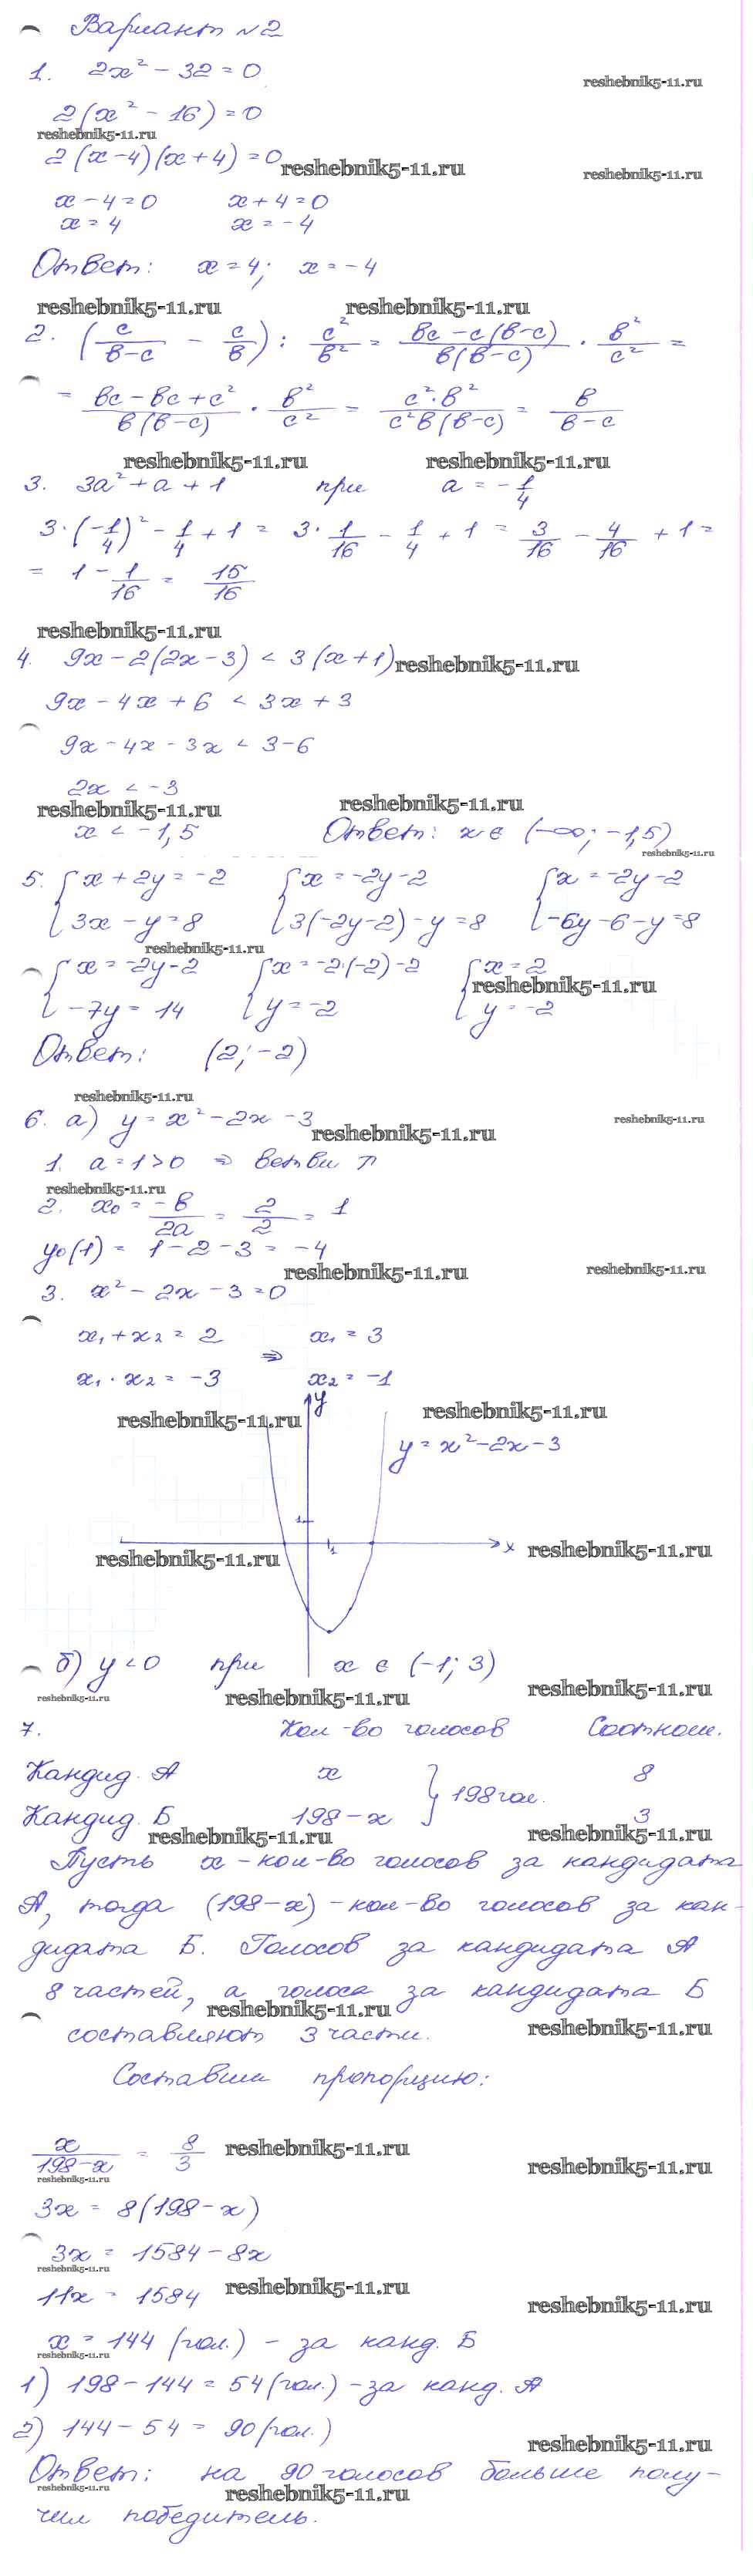 Вариант №2
1. 2x² - 32 = 0
reshebnik5-11.ru
2(x² - 16) = 0
reshebnik5-11.ru
2(x-4)(x+4) = 0
reshebnik5-11.ru
reshebnik5-11.ru
x - 4 = 0 x + 4 = 0
x = 4 x = -4
Ответ: x = 4; x = -4
reshebnik5-11.ru reshebnik5-11.ru
2. (c/(в-c) - c/в) : c²/в² = (вc - c(в-c))/(в(в-c)) · в²/c² =
= (вc - вc + c²)/(в(в-c)) · в²/c² = (c²·в²)/(c²в(в-c)) = в/(в-c)
reshebnik5-11.ru reshebnik5-11.ru
3. 3a² + a + 1 при a = -1/4
3·(-1/4)² - 1/4 + 1 = 3·1/16 - 1/4 + 1 = 3/16 - 4/16 + 1 =
= 1 - 1/16 = 15/16
reshebnik5-11.ru
4. 9x - 2(2x-3) < 3(x+1)
reshebnik5-11.ru
9x - 4x + 6 < 3x + 3
9x - 4x - 3x < 3 - 6
2x < -3
reshebnik5-11.ru reshebnik5-11.ru
x < -1,5 Ответ: x ∈ (-∞; -1,5)
reshebnik5-11.ru
5. { x + 2y = -2 { x = -2y-2 { x = -2y-2
{ 3x - y = 8 { 3(-2y-2) - y = 8 { -6y-6-y = 8
reshebnik5-11.ru
{ x = -2y-2 { x = -2·(-2)-2 { x = 2
reshebnik5-11.ru
{ -7y = 14 { y = -2 { y = -2
Ответ: (2; -2)
reshebnik5-11.ru
6. а) y = x² - 2x - 3
reshebnik5-11.ru
reshebnik5-11.ru
1. a = 1 > 0 ⇒ ветви ↑
reshebnik5-11.ru
2. x₀ = -в/2a = 2/2 = 1
y₀(1) = 1 - 2 - 3 = -4
reshebnik5-11.ru reshebnik5-11.ru
3. x² - 2x - 3 = 0
x₁ + x₂ = 2 x₁ = 3
⇒
x₁ · x₂ = -3 x₂ = -1
y
reshebnik5-11.ru reshebnik5-11.ru
y = x² - 2x - 3
1
1
x
reshebnik5-11.ru reshebnik5-11.ru
б) y < 0 при x ∈ (-1; 3)
reshebnik5-11.ru reshebnik5-11.ru reshebnik5-11.ru
7. Кол-во голосов Соотнош.
Кандид. А x 8
} 198 гол.
Кандид. Б 198 - x 3
reshebnik5-11.ru reshebnik5-11.ru
Пусть x - кол-во голосов за кандидата
А, тогда (198-x) - кол-во голосов за кан-
дидата Б. Голосов за кандидата А
8 частей, а голоса за кандидата Б
reshebnik5-11.ru
составляют 3 части.
reshebnik5-11.ru
Составим пропорцию:
x/(198-x) = 8/3
reshebnik5-11.ru
reshebnik5-11.ru
reshebnik5-11.ru
3x = 8(198-x)
3x = 1584 - 8x
reshebnik5-11.ru
11x = 1584
reshebnik5-11.ru
reshebnik5-11.ru
x = 144 (гол.) - за канд. Б
reshebnik5-11.ru
1) 198 - 144 = 54 (гол.) - за канд. А
2) 144 - 54 = 90 (гол.)
reshebnik5-11.ru
Ответ: на 90 голосов больше полу-
reshebnik5-11.ru reshebnik5-11.ru
чил победитель.